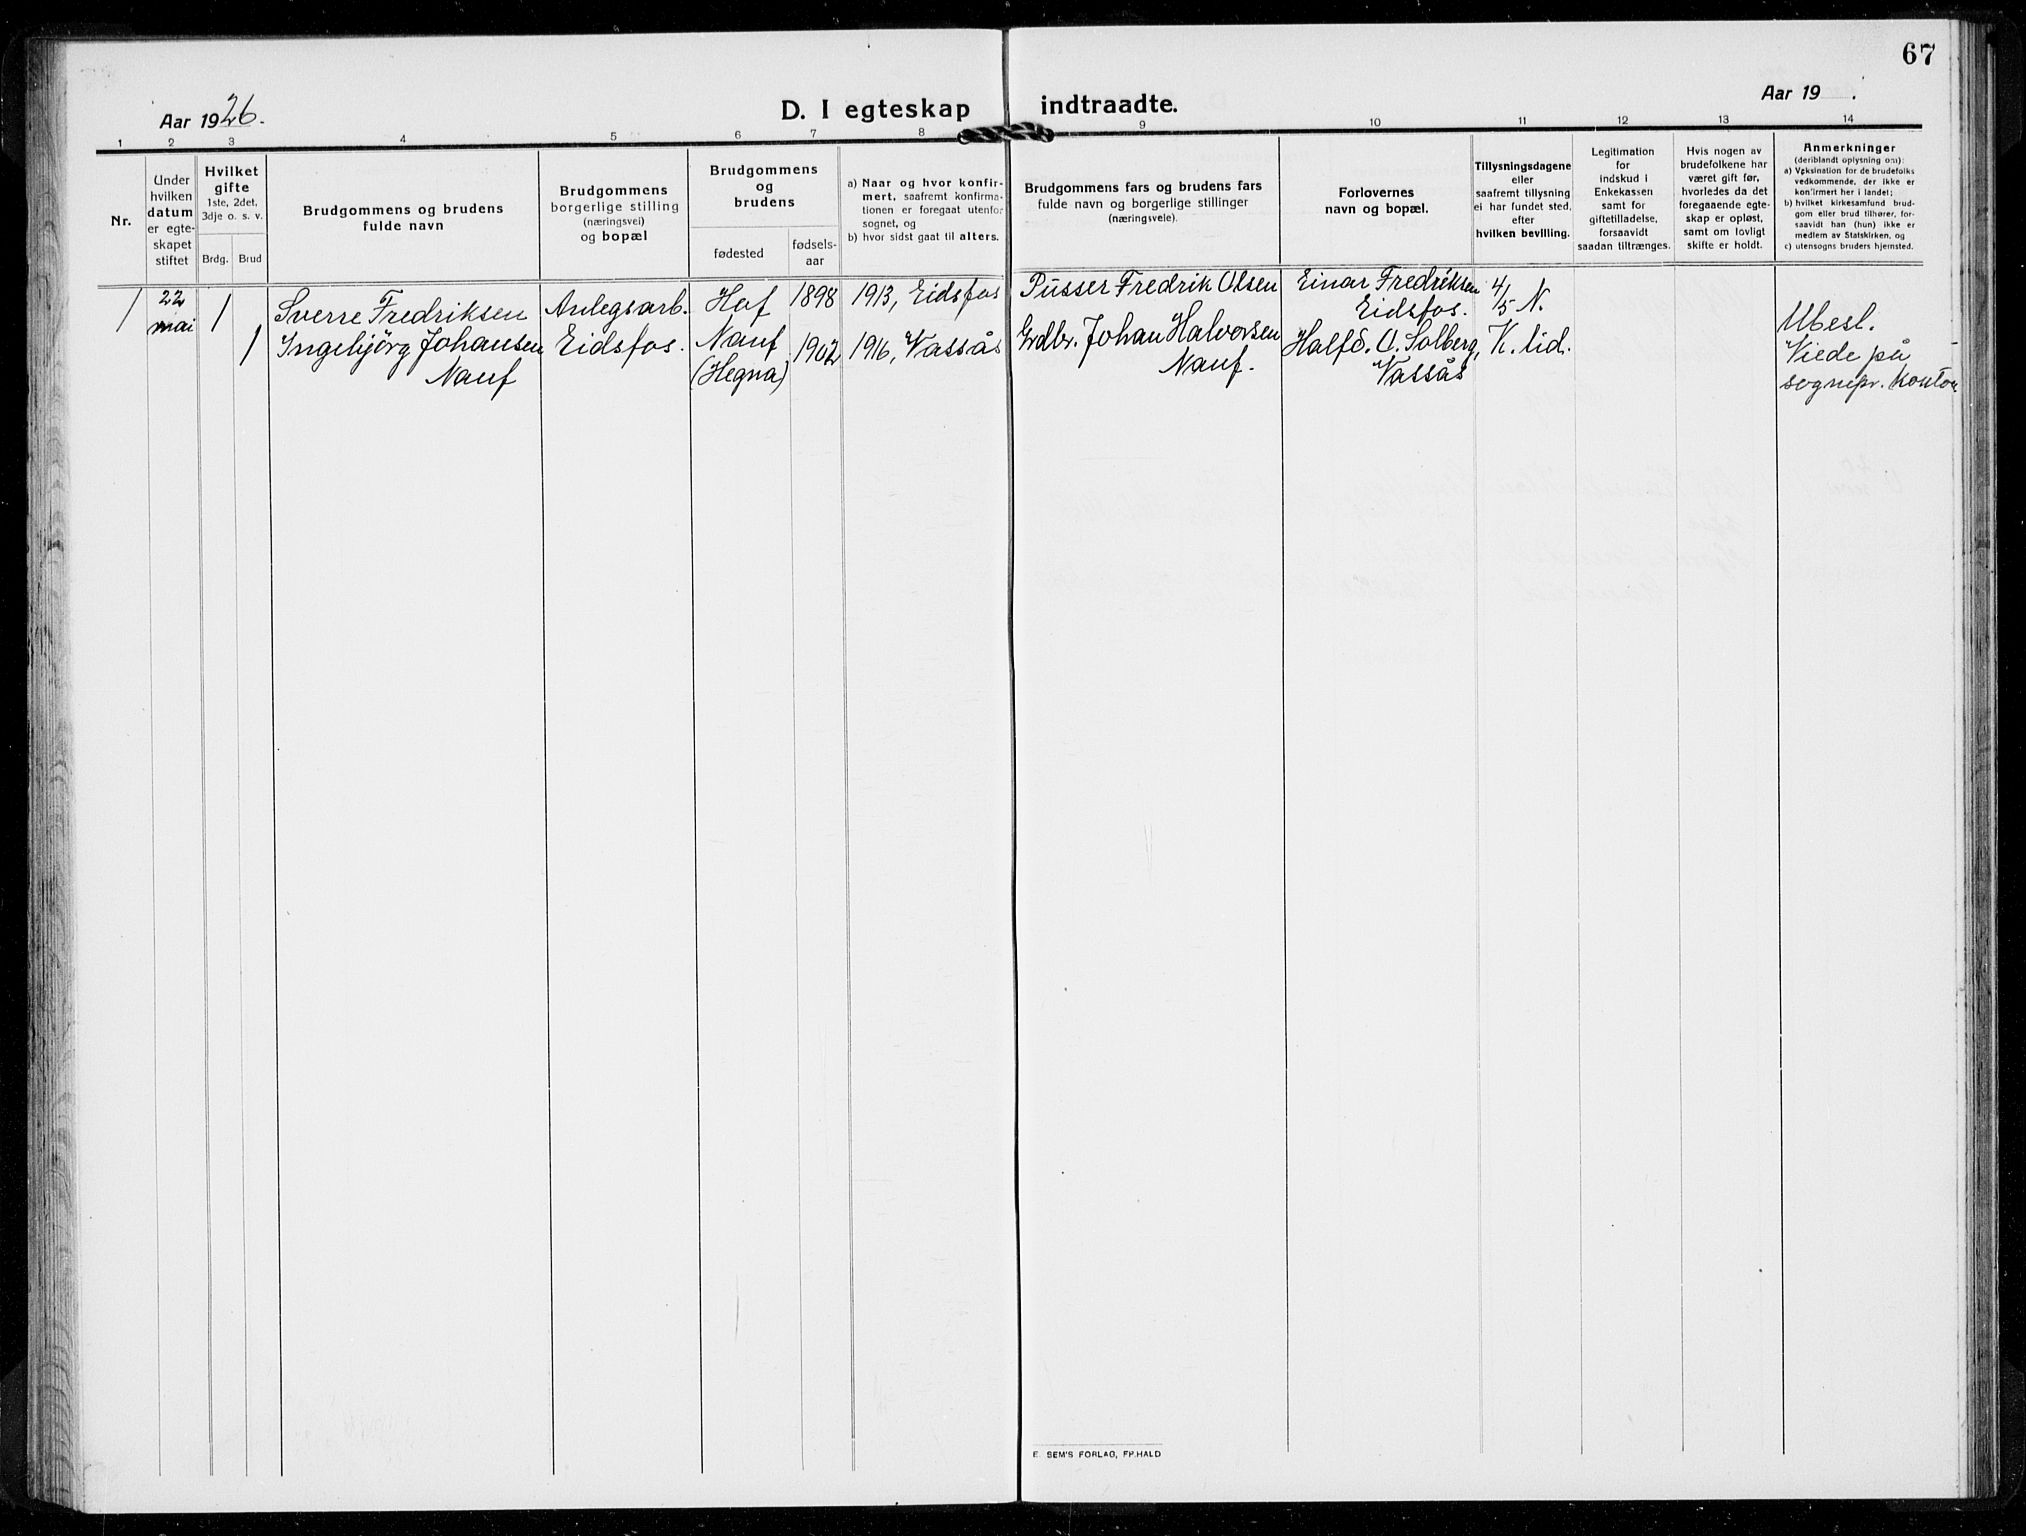 67
Aar 1926.
D. I egteskap indtraadte.
Aar 19 .
1 2 3 4 5 6 7 8 9 10 11 12 13 14
Nr.
Under
hvilken
datum
er egte-
skapet
stiftet
Hvilket
gifte
1ste, 2det,
3dje o. s. v.
Brdg. Brud
Brudgommens og brudens
fulde navn
Brudgommens
borgerlige stilling
(næringsvei)
og bopæl
Brudgommens
og
brudens
fødested
fødsels-
aar
a) Naar og hvor konfir-
mert, saafremt konfirma-
tionen er foregaat utenfor
sognet, og
b) hvor sidst gaat til alters.
Brudgommens fars og brudens fars
fulde navn og borgerlige stillinger
(næringsveie).
Forlovernes
navn og bopæl.
Tillysningsdagene
eller
saafremt tillysning
ei har fundet sted,
efter
hvilken bevilling.
Legitimation
for
indskud i
Enkekassen
samt for
giftetilladelse,
forsaavidt
saadan tiltrænges.
Hvis nogen av
brudefolkene har
været gift før,
hvorledes da det
foregaaende egte-
skap er opløst,
samt om lovligt
skifte er holdt.
Anmerkninger
(deriblandt oplysning om):
a) Vaksination for de brudefolks
vedkommende, der ikke er
konfirmert her i landet;
b) hvilket kirkesamfund brud-
gom eller brud tilhører, for-
saavidt han (hun) ikke er
medlem av Statskirken, og
c) utensogns bruders hjemsted.
1
22
mai
1
Sverre Fredriksen
Anlegsarb.
Eidsfos.
Hof
1898
1913, Eidsfos
Pusser Fredrik Olsen
Einar Fredriksen
Eidsfos.
4/5 N.
K. tid.
1
Ingebjörg Johansen
Nauf
Nauf
(Hegna)
1902
1916, Vassås
Grdbr. Johan Halvorsen
Nauf.
Halfd. O. Solberg,
Vassås
Ubesl.
Viede på
sognepr. kontor
E. SEM'S FORLAG, FR.HALD